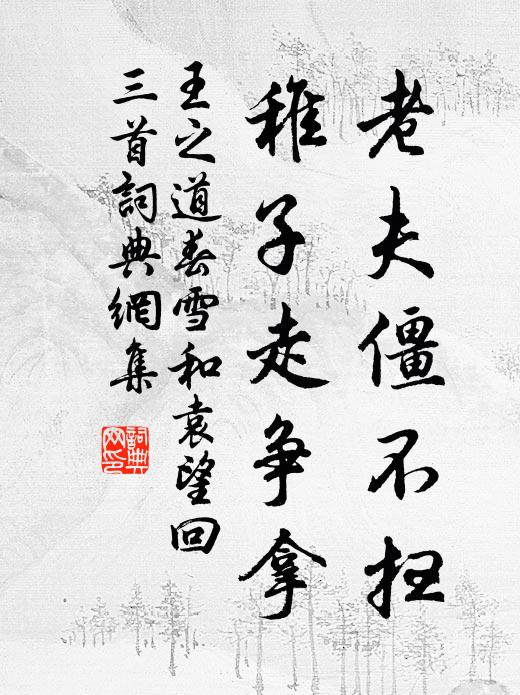 老夫僵不
稚子走争拿
王之道春雪和袁望回
三首詞典網集
詞典网印